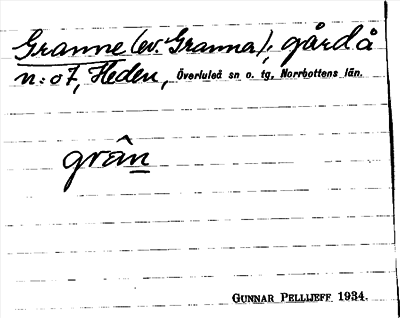 Granne (ev. Granna); gård å
n:o 7, Heden, Överluleå sn o. tg, Norrbottens län.
grân
GUNNAR PELLIJEFF 1934.